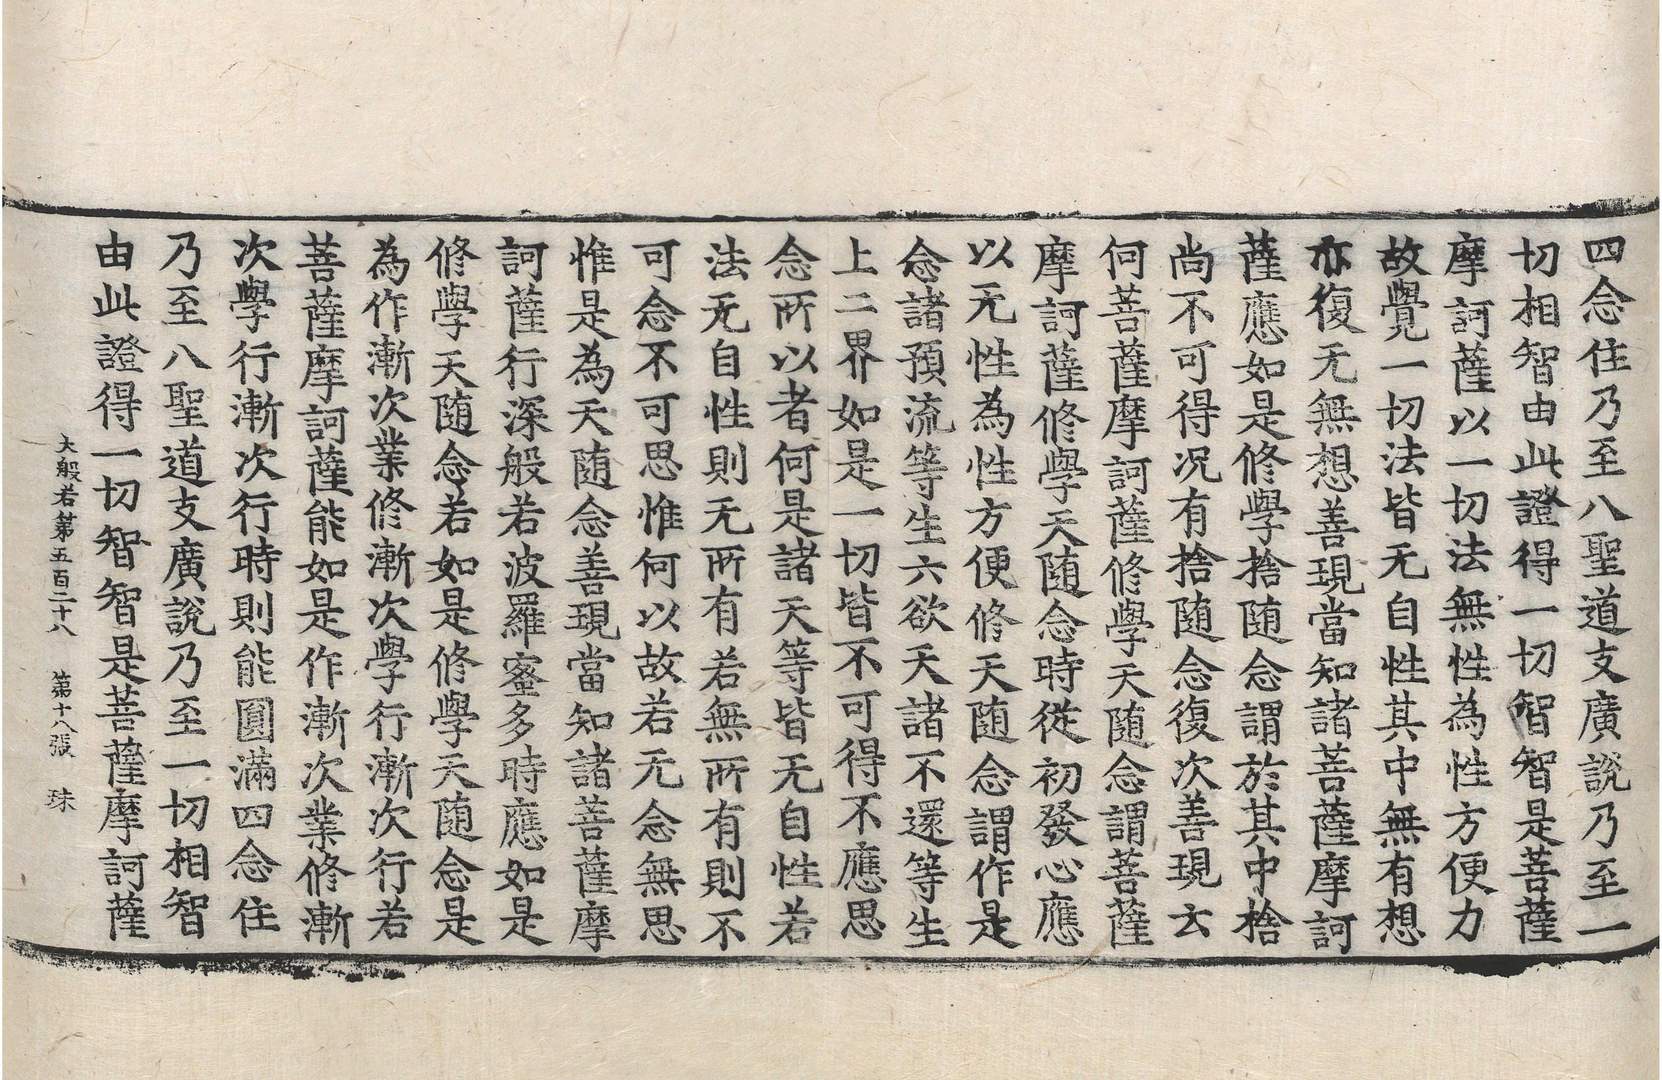 四念住乃至八聖道支廣說乃至一
切相智由此證得一切智智是菩薩
摩訶薩以一切法無性為性方便力
故覺一切法皆无自性其中無有想
亦復无無想善現當知諸菩薩摩訶
薩應如是修學捨随念謂於其中捨
尚不可得况有捨随念復次善現云
何菩薩摩訶薩修學天随念謂菩薩
摩訶薩修學天随念時從初發心應
以无性為性方便修天随念謂作是
念諸預流等生六欲天諸不還等生
上二界如是一切皆不可得不應思
念所以者何是諸天等皆无自性若
法无自性則无所有若無所有則不
可念不可思惟何以故若无念無思
惟是為天随念善現當知諸菩薩摩
訶薩行深般若波羅蜜多時應如是
修學天随念若如是修學天随念是
為作漸次業修漸次學行漸次行若
菩薩摩訶薩能如是作漸次業修漸
次學行漸次行時則能圓滿四念住
乃至八聖道支廣說乃至一切相智
由此證得一切智智是菩薩摩訶薩
大般若第五百二十八 第十八張 珠